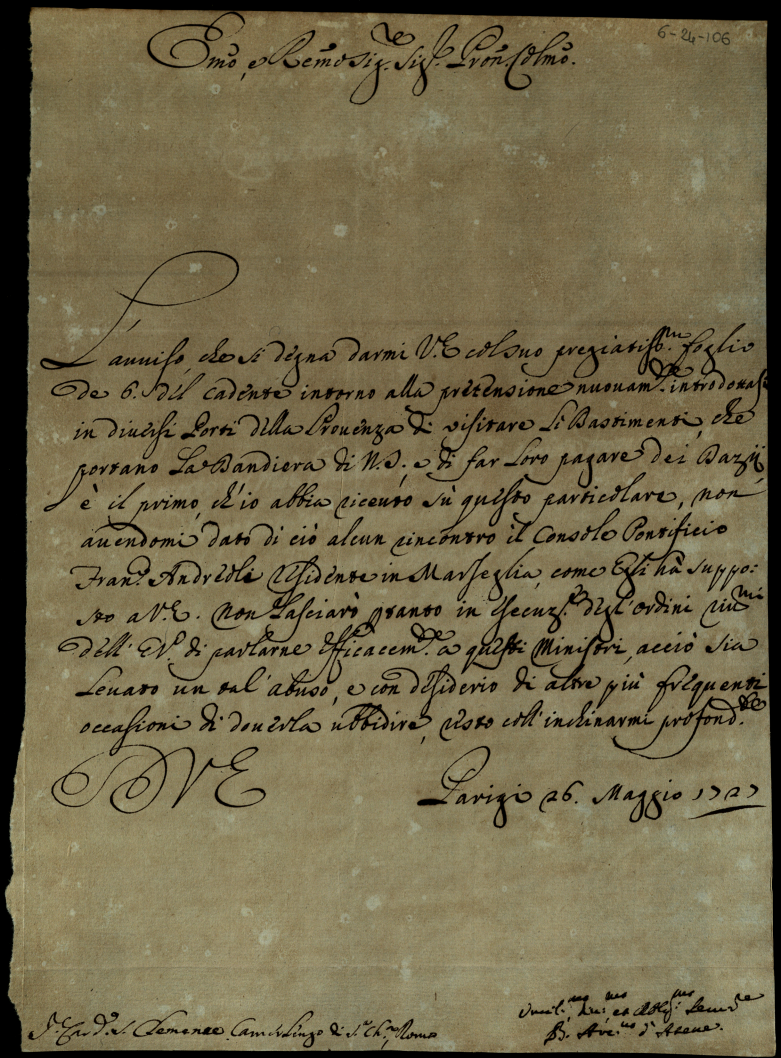 6-24-106
Emo, e Remo Sig.re Sig.r Pron Colmo.
L'auuiso, che si degna darmi V.E col suo pregiatiss.mo foglio
de 6. del cadente intorno alla pretensione nuouam.te introdotta
in diuersi Porti della Prouenza di visitare li Bastimenti, che
portano la Bandiera di N.S. e di far loro pagare dei Dazij
è il primo, ch'io abbia riceuto sù questo particolare, non
auendomi dato di ciò alcun rincontro il Console Pontificio
Fran.o Andreoli residente in Marseglia, come Egli hà suppo:
sto a V.E. Non lasciarò pertanto in esecuz.e degl'ordini riu.mi
dell'E.V. di parlarne efficacem.te a questi Ministri, acciò sia
leuato un tal'abuso, e con desiderio di altre più frequenti
occasioni di douerla ubbidire, resto coll'inchinarmi profond.te
D V E
Parigi 26. Maggio 1727
S.r Card.e S. Clemente Camerlengo di S.ta Ch.a Roma
Umil.mo Deu.mo et Obblig.mo Seru.re
B. Arc.uo d'Atene.